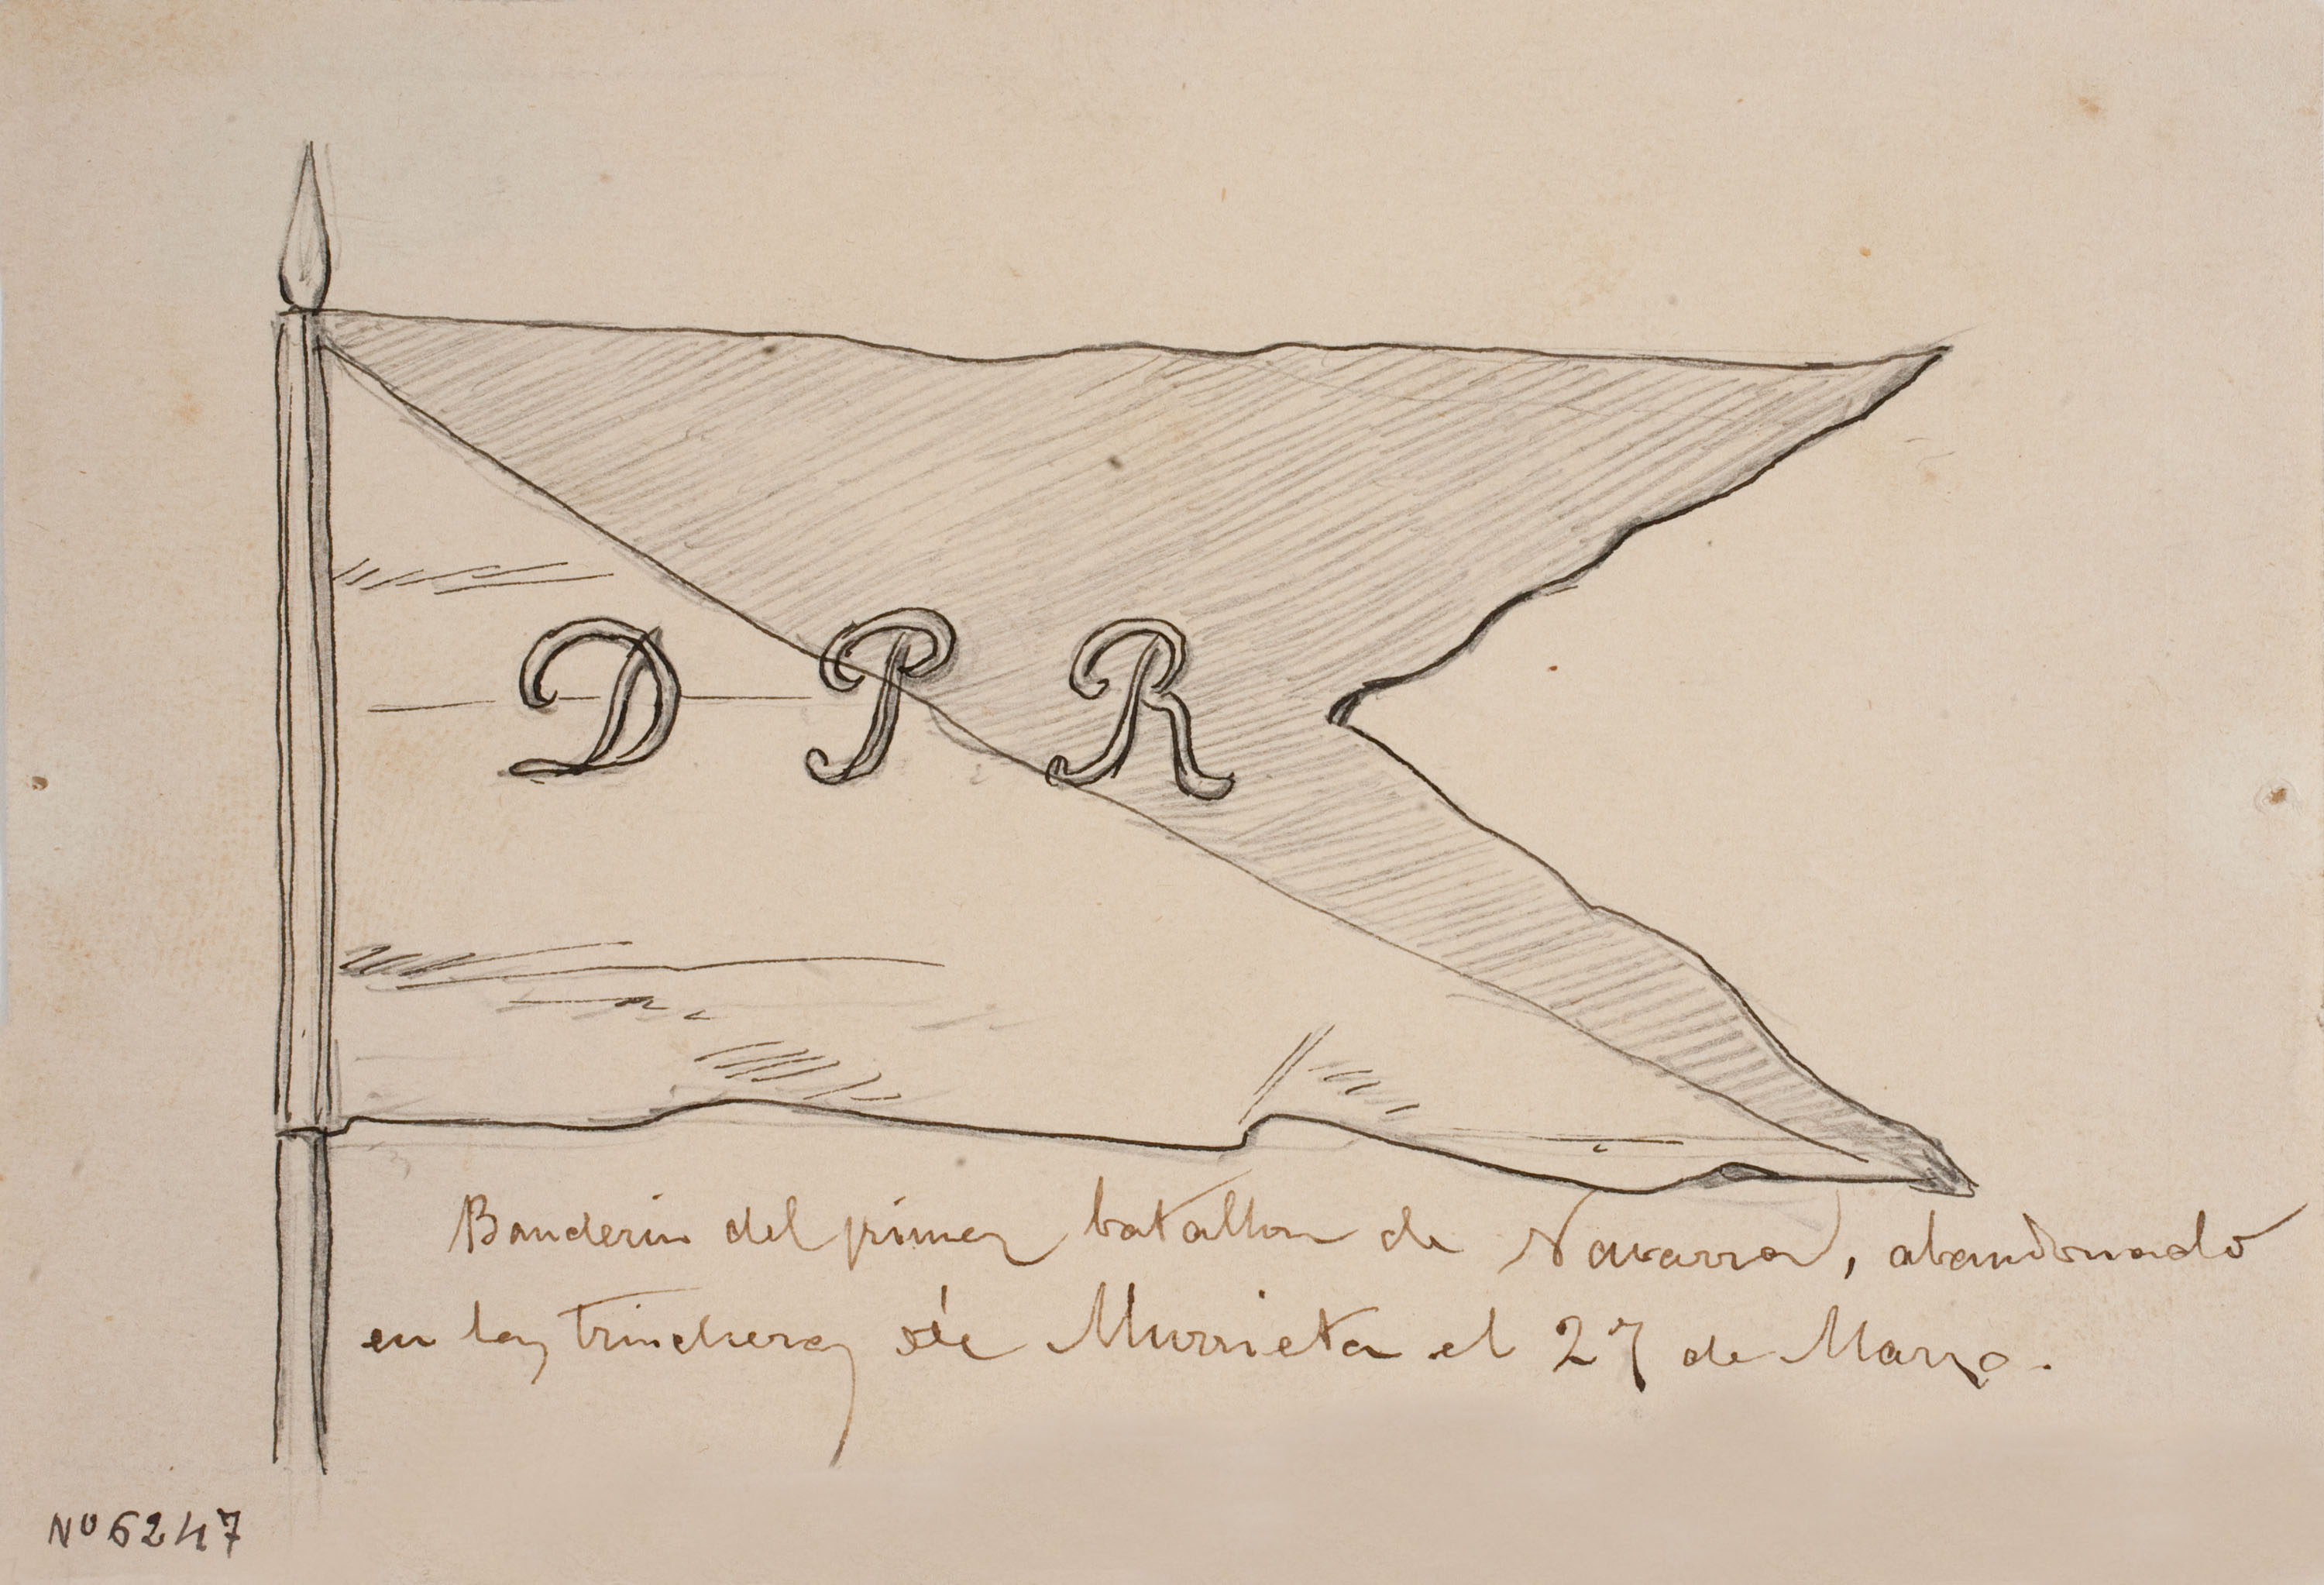 D P R
Banderin del primer batallon de Navarra, abandonado
en las trincheras de Murrieta el 27 de Marzo.
Nº 6247